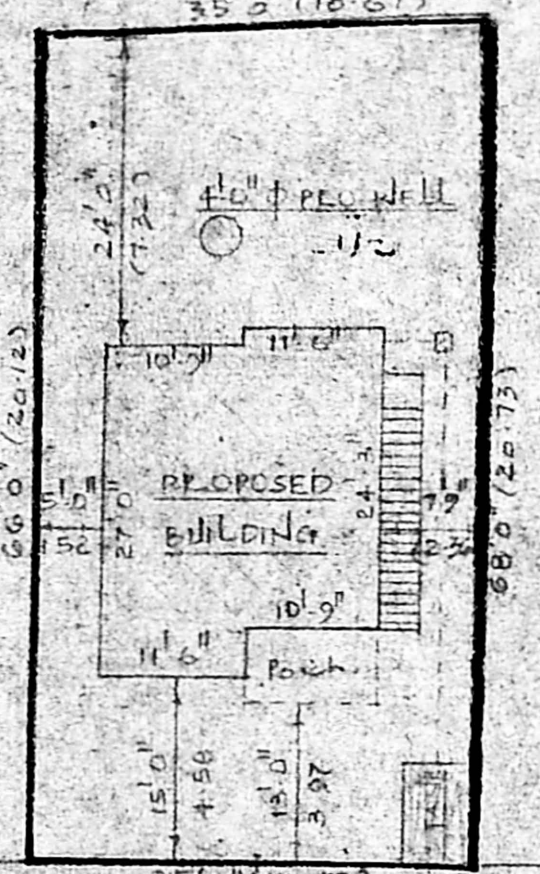 35 0 (10.67)
24'0"
(7.32)
4'0" ϕ PRO WELL
10'-9"
11'-6"
66 0" (20.12)
5'0"
1.52
27'0"
PROPOSED
BUILDING
24'-3"
7'9"
2.36
68'0" (20.73)
10'-9"
11'6"
Porch
15'0"
4.58
13'0"
3.97